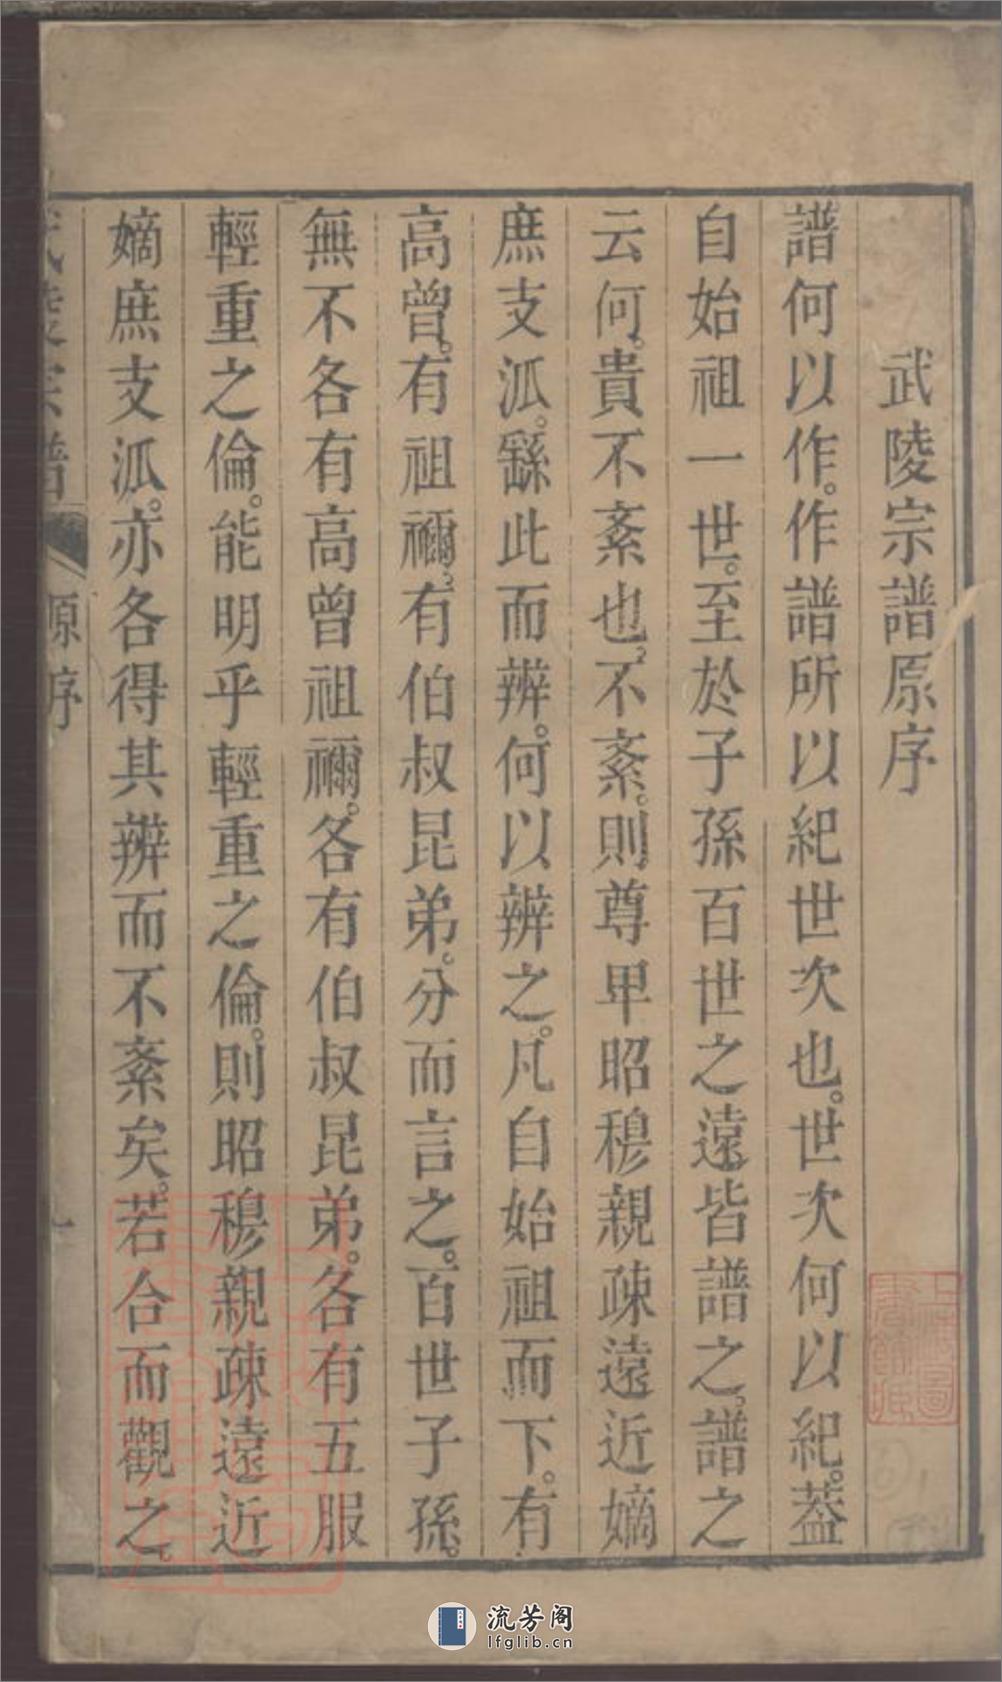 武陵宗譜原序
譜何以作。作譜所以紀世次也。世次何以紀。葢
自始祖一世。至於子孫百世之遠皆譜之。譜之
云何。貴不紊也。不紊。則尊𤰞昭穆親疎遠近嫡
庶支泒。繇此而辨。何以辨之。凡自始祖而下。有
高曾。有祖禰。有伯叔昆弟。分而言之。百世子孫。
無不各有高曾祖禰。各有伯叔昆弟。各有五服
輕重之倫。能明乎輕重之倫。則昭穆親疎遠近
嫡庶支泒。亦各得其辨而不紊矣。若合而觀之。
源序
流芳阁
lfglib.cn